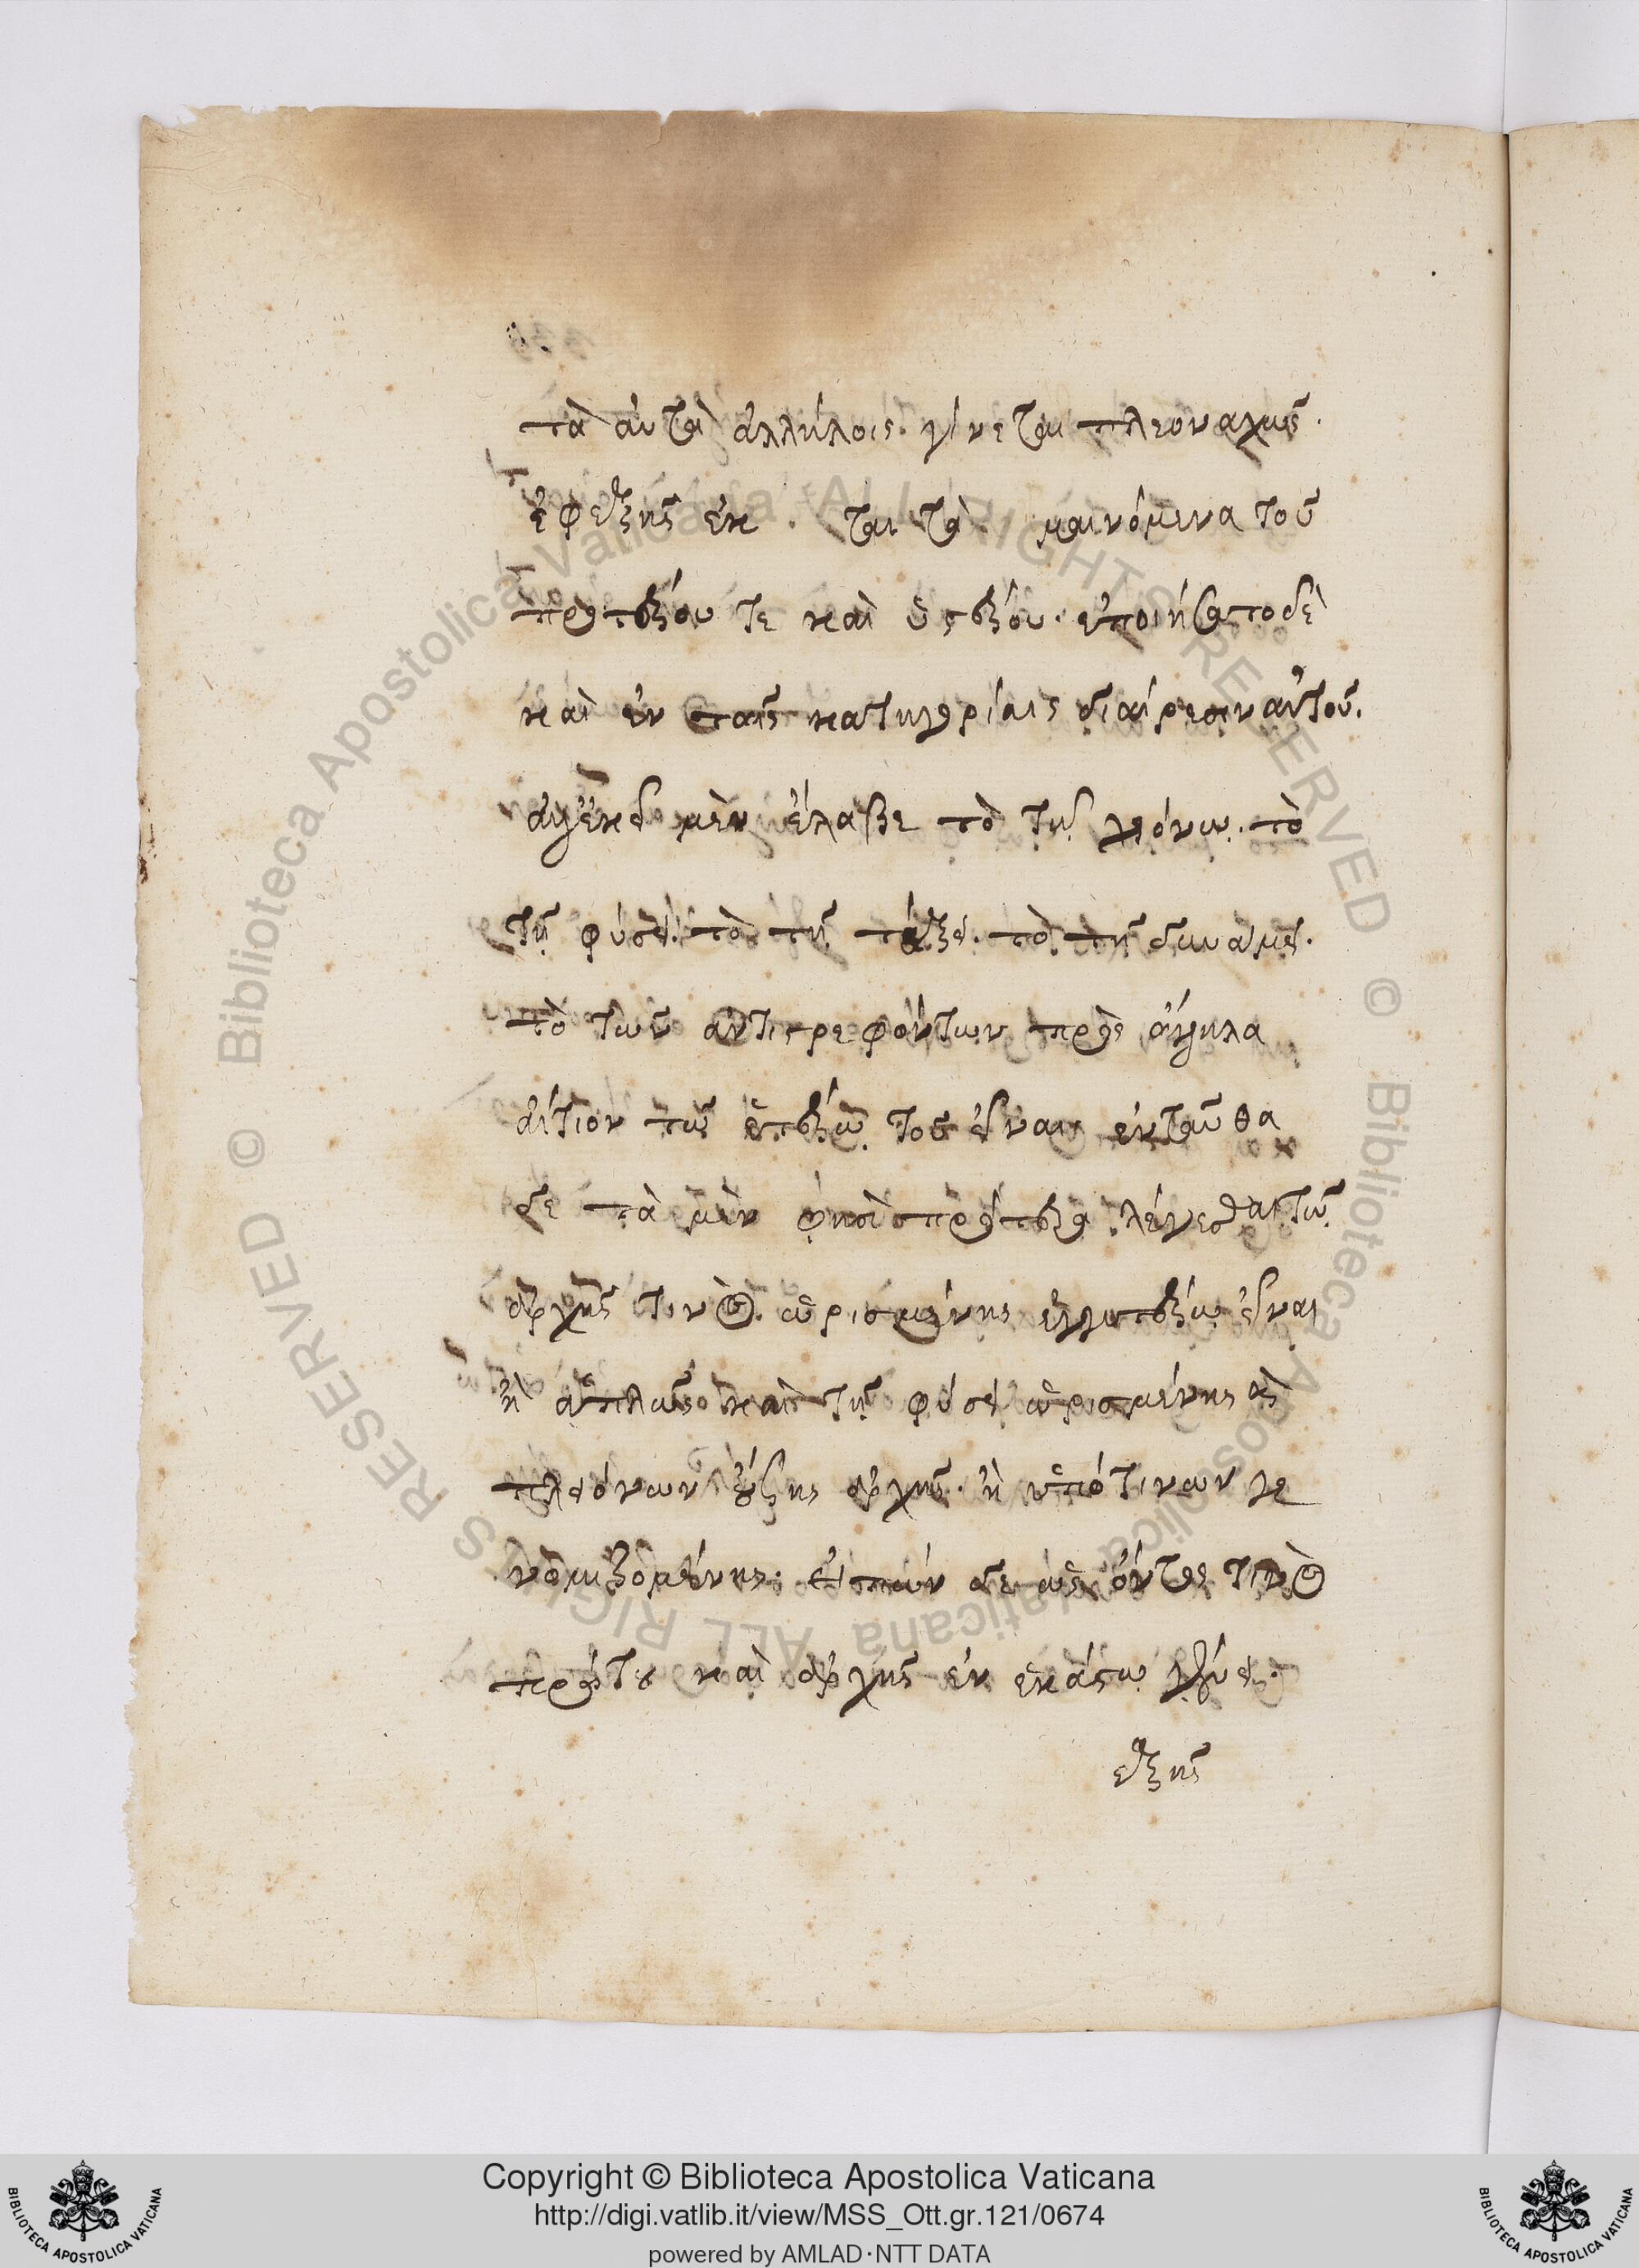 τὰ ἀυτὰ ἀλλήλοις. γίνεται πλεοναχῶς.
ἐφεξῆς ἐκ . ται τὰ μαινόμενα τοῦ
προτέρου τε καὶ ὑστέρου. ἐποιήσατο δὲ
καὶ ἐν ταῖς κατηγορίαις διαίρεσιν αὐτοῦ.
ἀλλ' ἐκεῖ μὲν ἔλαβε τὸ τῷ χρόνῳ. τὸ
τῇ φύσει. τὸ τῇ τάξει. τὸ τῇ δυνάμει.
τὸ τῶν ἀντιστρεφόντων πρὸς ἄλληλα
αἴτιον τῷ ἑτέρῳ τοῦ εἶναι ἐνταῦθα
δε τὰ μὲν φησὶ πρότερα λέγεσθαι τῷ
ἀρχῆς τινὸς ὡρισμένης ἐγγυτέρω εἶναι
ἢ ἁπλῶς καὶ τῇ φύσει ὡρισμένης
πλειόνων ἀρχῆς. ἢ ὑπό τινων γε
νομιζομένης. εἰπὼν δε ὡς ὄντος τινὸς
πρώτου καὶ ἀρχῆς ἐν ἑκάστῳ γένει.
ἑξῆς
© Biblioteca Apostolica Vaticana ALL RIGHTS RESERVED © Biblioteca Apostolica Vaticana ALL RIGHTS RESERVED
Copyright © Biblioteca Apostolica Vaticana
http://digi.vatlib.it/view/MSS_Ott.gr.121/0674
powered by AMLAD·NTT DATA
BIBLIOTECA APOSTOLICA VATICANA
BIBLIOTECA APOSTOLICA VATICANA